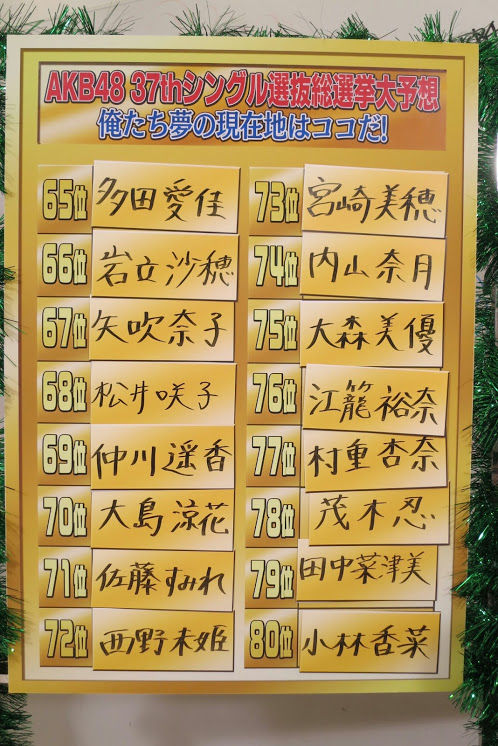 AKB48 37thシングル選抜総選挙大予想
俺たち夢の現在地はココだ!
65位 多田愛佳
66位 岩立沙穂
67位 矢吹奈子
68位 松井咲子
69位 仲川遥香
70位 大島涼花
71位 佐藤すみれ
72位 西野未姫
73位 宮崎美穂
74位 内山奈月
75位 大森美優
76位 江籠裕奈
77位 村重杏奈
78位 茂木忍
79位 田中菜津美
80位 小林香菜